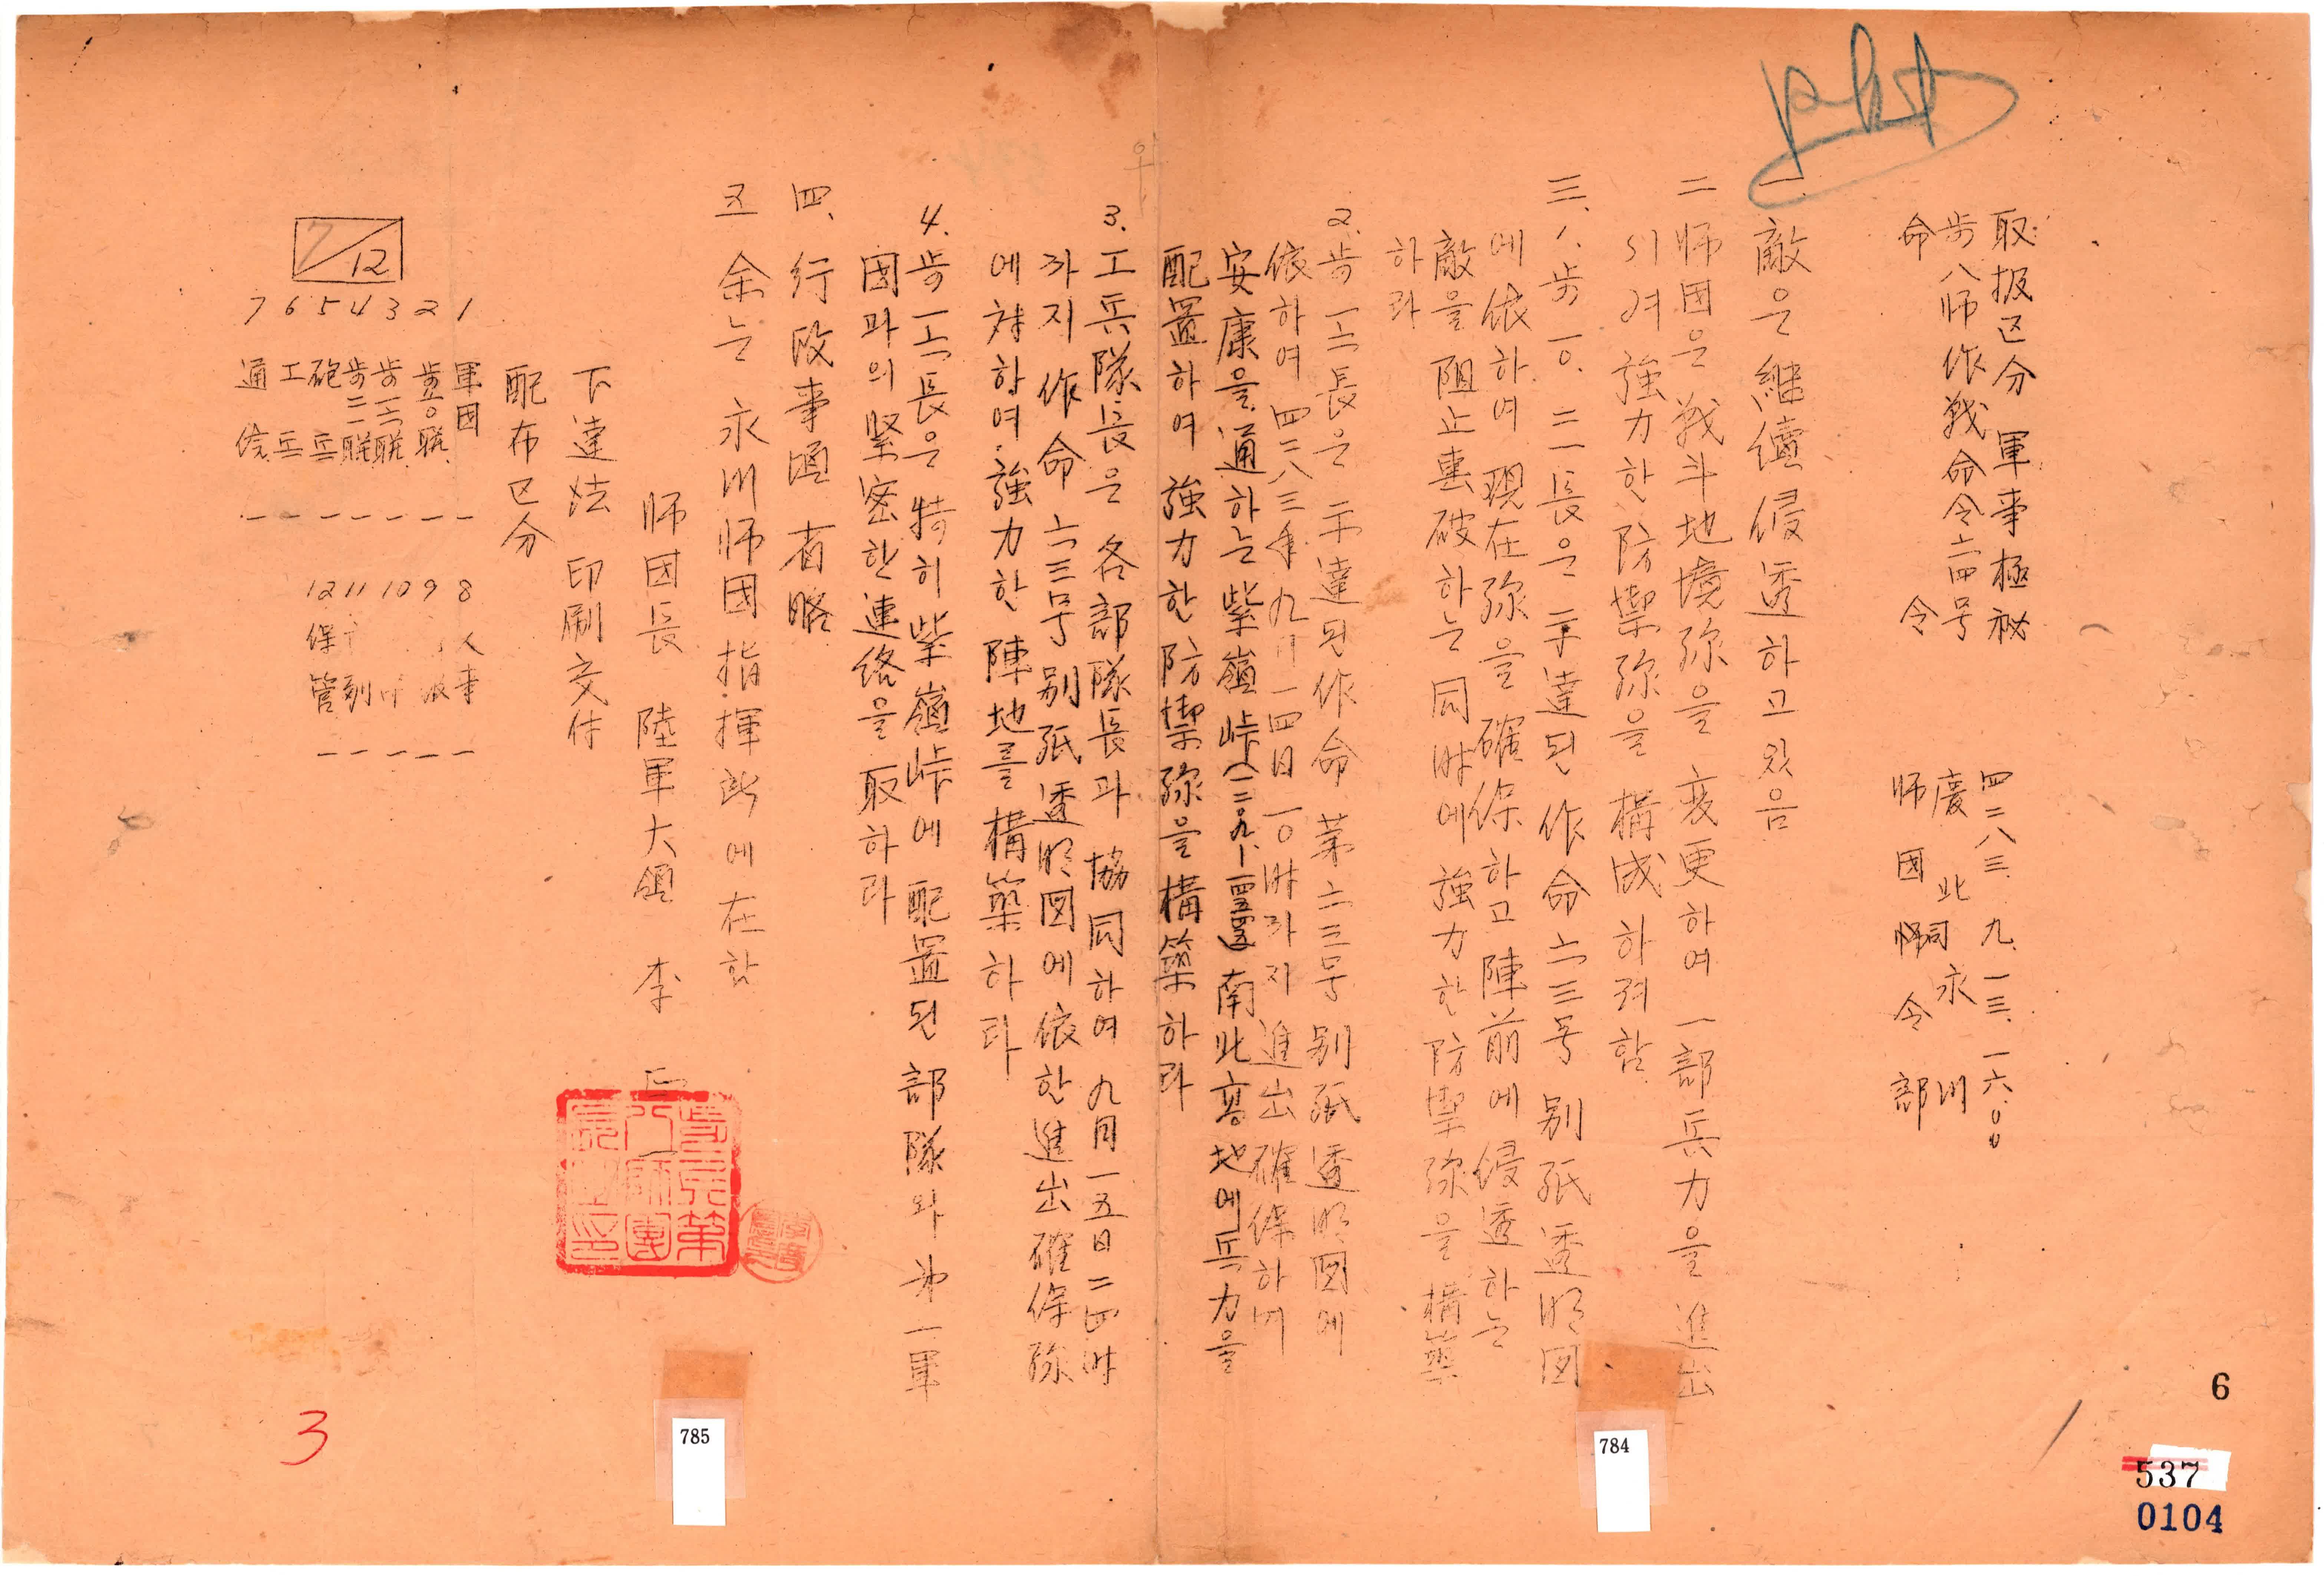 取扱区分 軍事極祕
步八师作戰命令六四号
命令
四二八三. 九. 一三. 一六.００
慶北 永川
师团司令部
一 敵은 継續侵透하고 있음
二 师团은 戰斗地境線을 変更하여 一部兵力을 進出
식혀 強力한 防禦線을 構成하려함
三. 1. 步一○. 二一長은 示達된 作命 六三号 別紙透明図
에 依하여 現在線을 確保하고 陣前에 侵透하는
敵을 阻止 破하는 同時에 強力한 防禦線을 構築
하라
2. 步一六長은 示達된 作命 第六三号 別紙透明図에
依하여 四二八三年 九月 一四日 一○時까지 進出確保하며
安康을 通하는 紫嶺峠 南北高地에 兵力을
配置하여 強力한 防禦線을 構築하라
3. 工兵隊長은 各部隊長과 協同하여 九月一五日 二四時
까지 作命 六三号 別紙透明図에 依한 進出確保線
에 対하여 強力한 陣地를 構築하라
4. 步一六長은 特히 紫嶺峠에 配置된 部隊와 第一軍
團과의 緊密한 連絡을 取하라
四. 行政事項 省略
五 余는 永川师團指揮所에 在함
师団長 陸軍大領 李
下達法 印刷交付
配布区分
7/12
1 軍團 一
2 步一○聯 一
3 步一六聯 一
4 步二一聯 一
5 砲兵 一
6 工兵 一
7 通信 一
8 人事 一
9
10
11
12 保管 一
步兵第八師團長之印
785
784
3
6
537
0104